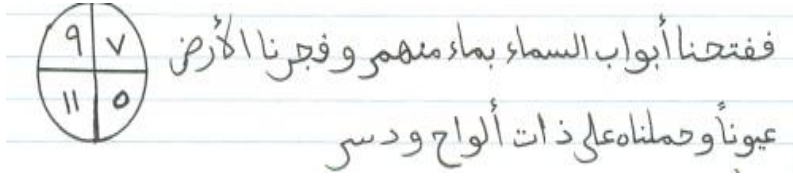 ففتحنا أبواب السماء بماء منهمر وفجرنا الأرض
عيوناً وحملناه على ذات ألواح ودسر
٧ ٩
٥ ١١